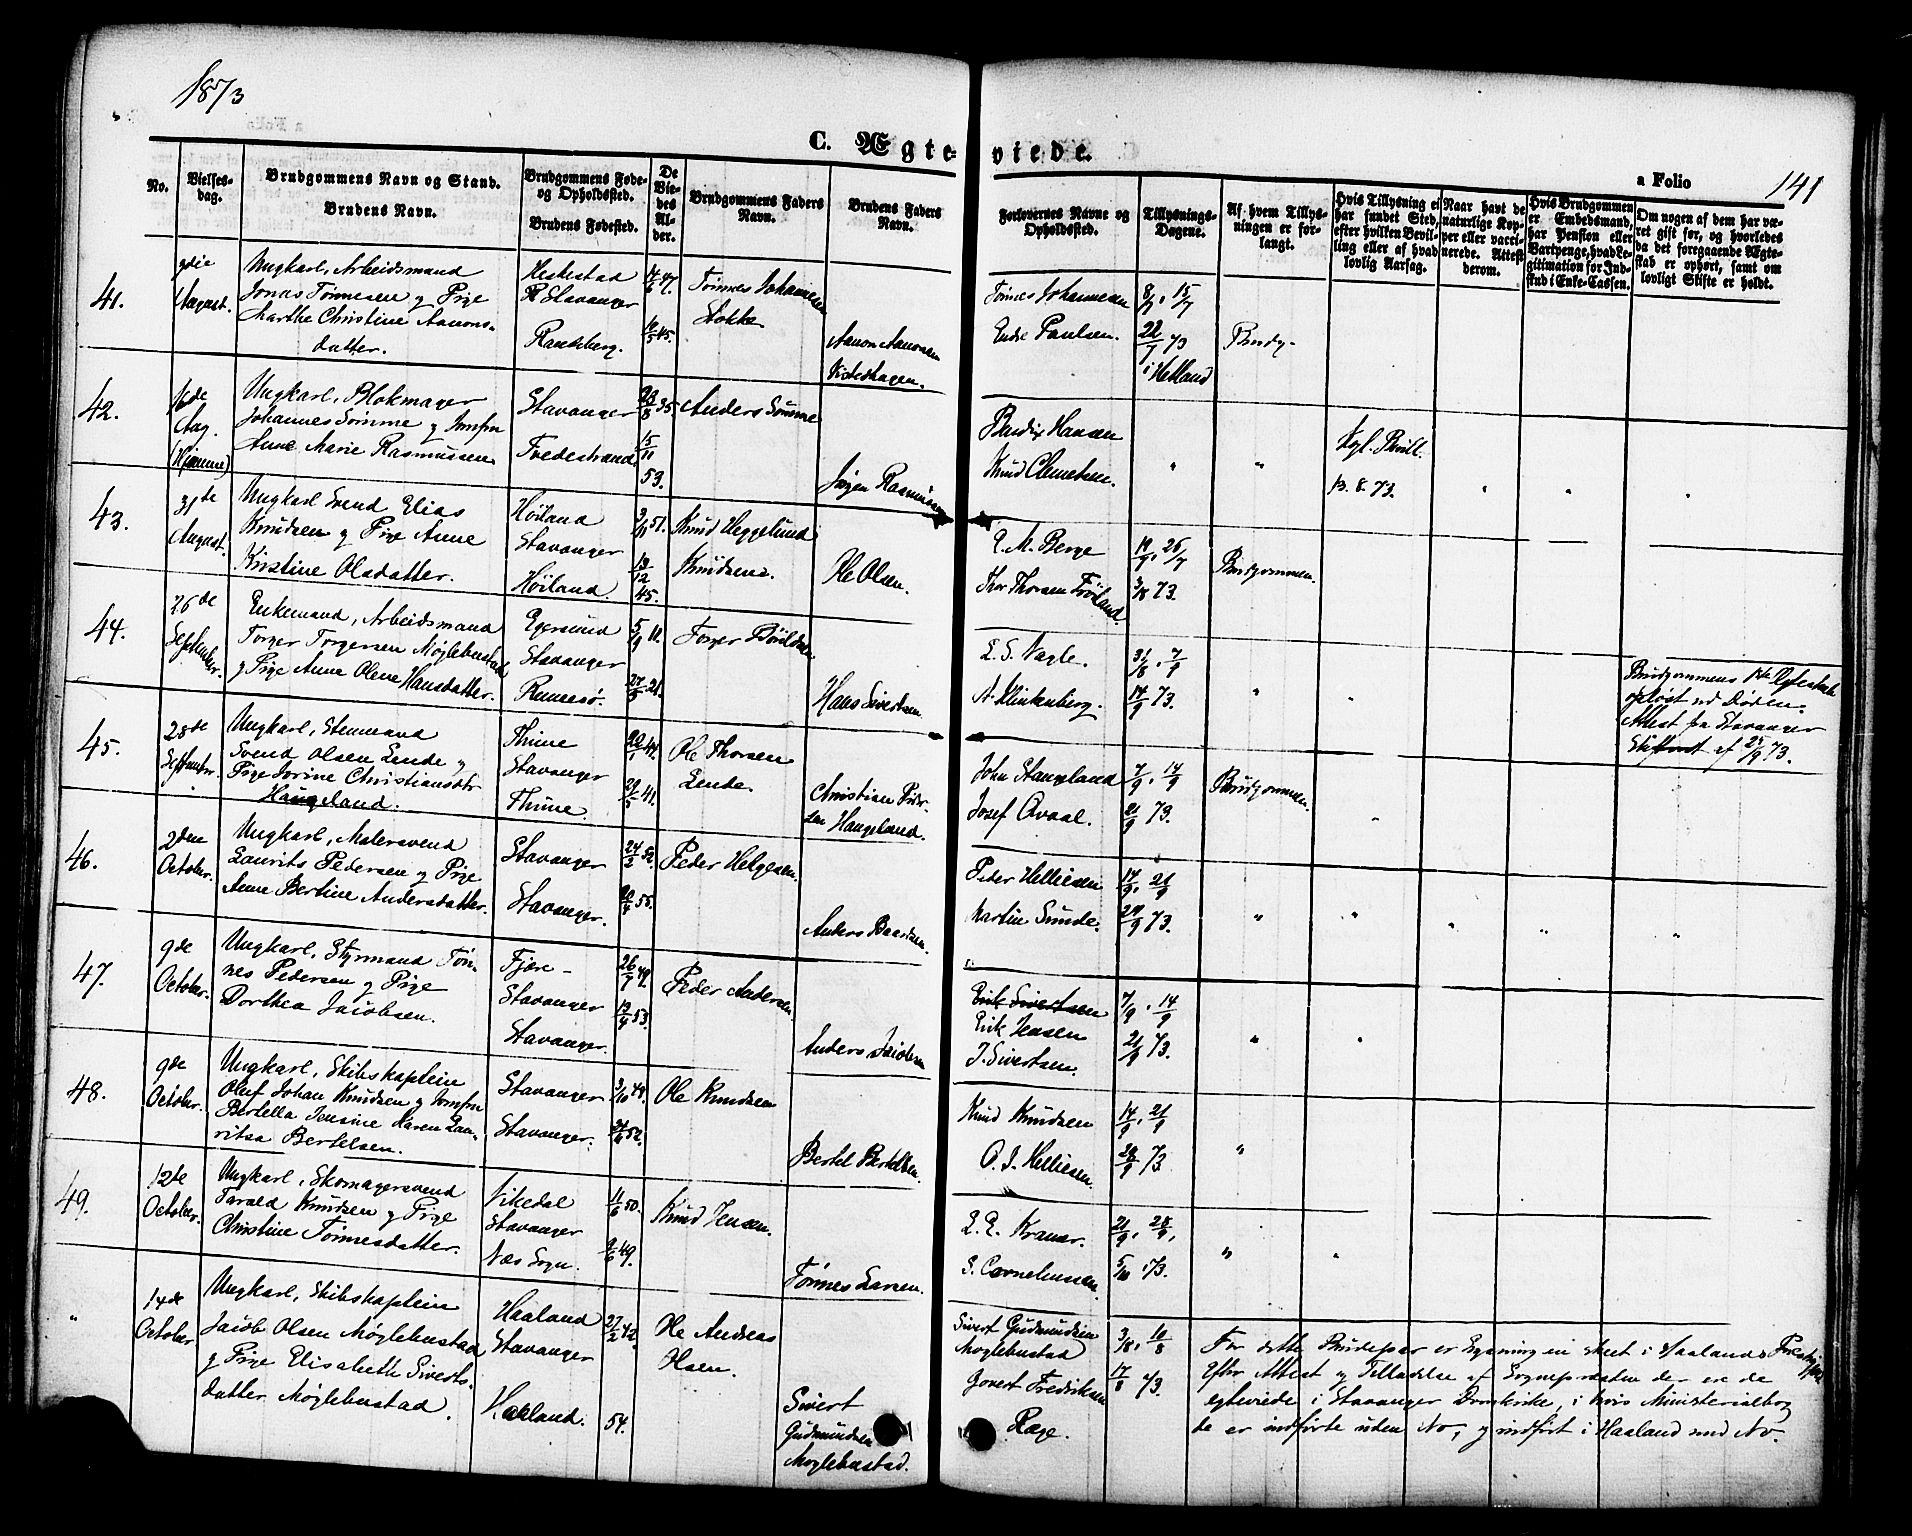 1873
C. Ægteviede.
a Folio 141
No.
Vielsesdag.
Brudgommens Navn og Stand.
Brudens Navn.
Brudgommens Føde- og Opholdssted.
Brudens Fødested.
De Viedes Alder.
Brudgommens Faders Navn.
Brudens Faders Navn.
Forlovernes Navne og Opholdssted.
Tillysnings-Dagene.
Af hvem Tillysningen er forlangt.
Hvis Tillysning ei har fundet Sted, efter hvilken Bevilling eller af hvad lovlig Aarsag.
Naar havt de naturlige Kopper eller vaccinerede. Attest derom.
Hvis Brudgommen er Embedsmand, har Pension eller Vartpenge, hvad Legitimation for Indskud i Enke-Cassen.
Om nogen af dem har været gift før, og hvorledes da det foregaaende Ægteskab er ophørt, samt om lovligt Skifte er holdt.
41.
August.
Ungkarl, Arbeidsmand
Jonas Tønnesen og Pige
Marthe Christine Aanons-
datter.
Hetlestad
Stavanger
Randeberg.
Tønnes Johannesen
Stokke
Aanon Aanonsen
Tønnes Johannesen
Endre Paulsen.
8/7, 15/7
22/7 73
i Hetland
42.
16de
Aug.
(Hjemme)
Ungkarl, Blokmager
Johannes Sømme og Jomfru
Anne Marie Rasmussen
Stavanger
Tvedestrand
23/8 35
15/11
53.
Anders Sømme
Jørgen Rasmussen
Bendix Hansen
Knud Clemetsen.
Kgl. Bevill.
13. 8. 73.
43.
31te
August.
Ungkarl Svend Elias
Knudsen og Pige Anne
Kristine Olsdatter.
Høiland
Stavanger
Høiland.
12
45.
Knud Heggelund
Knudsen.
Ole Olsen.
E. M. Berge
Thor Thorsen Frøiland
3/8 73.
Brudgommen.
44.
26de
September.
Enkemand, Arbeidsmand
Torger Torgersen Møglebustad
og Pige Anne Olene Hansdatter.
Egersund
Stavanger
Rennesø.
Torger Bøildsen
Hans Sivertsen
L. S. Nagle.
A. Klinkenberg.
31/8, 7/9
14/9 73.
Brudgommens 1ste Ægteskab
opløst ved Døden.
Attest fra Stavanger
Skifteret af 25/9 73.
45.
28de
September
Ungkarl, Stenmand
Svend Olsen Lende og
Pige Jorine Christiansdtr
Haugeland.
Thime
Stavanger
Thime.
Ole Thorsen
Lende.
Christian Peder-
sen Haugeland.
John Stangeland
Josef Qvaal.
7/9, 14/9
21/9 73.
Brudgommen.
46.
2den
October.
Ungkarl, Malersvend
Laurits Pedersen og Pige
Anne Bertine Andersdatter.
Stavanger
Stavanger.
Peder Helgesen.
Anders Baardsen.
Peder Helliesen
Martin Sunde.
14/9, 21/9
28/9 73.
47.
9de
October.
Ungkarl, Styrmand Tøn-
nes Pedersen og Pige
Dorthea Jacobsen.
Fjære -
Stavanger
Stavanger.
26/7 49.
13/4 53.
Peder Andersen
Anders Jacobsen
Erik Sivertsen
Erik Jensen
J. Sivertsen.
7/9, 14/9
21/9 73.
48.
9de
October.
Ungkarl, Skibskaptein
Oluf Johan Knudsen og Jomfru
Bertella Jensine Karen Lau-
ritsa Bertelsen.
Stavanger
Stavanger.
3/10 48.
Ole Knudsen
Bertel Bertelsen
Knud Knudsen
O. J. Helliesen
14/9, 21/9
28/9 73.
49.
12te
October.
Ungkarl, Skomagersvend
Tarald Knudsen og Pige
Christine Tønnesdatter.
Vikedal
Stavanger
Næs Sogn.
11/6 50.
9/6 49.
Knud Jensen
Tønnes Larsen.
L. E. Kramer.
S. Cornelinssen.
21/9, 28/9,
5/10 73.
"
14de
October
Ungkarl, Skibskaptein
Jacob Olsen Møglebustad
og Pige Elisabeth Siverts-
datter Møglebustad.
Haaland
Stavanger
Haaland.
27/2 42.
54.
Ole Andreas
Olsen.
Sivert
Gudmundsen
Møglebustad.
Sivert Gudmundsen
Møglebustad
Govert Fredriksen
Rage.
3/8, 10/8
17/8 73.
For dette Brudepar er Lysning en skeet i Haalands Præstegjæld
Efter Attest og Tilladelse af Sognepræsten der ere de
egteviede i Stavanger Domkirke, i hvis Ministerialbog
de er indførte uden No, og indført i Haaland med No.